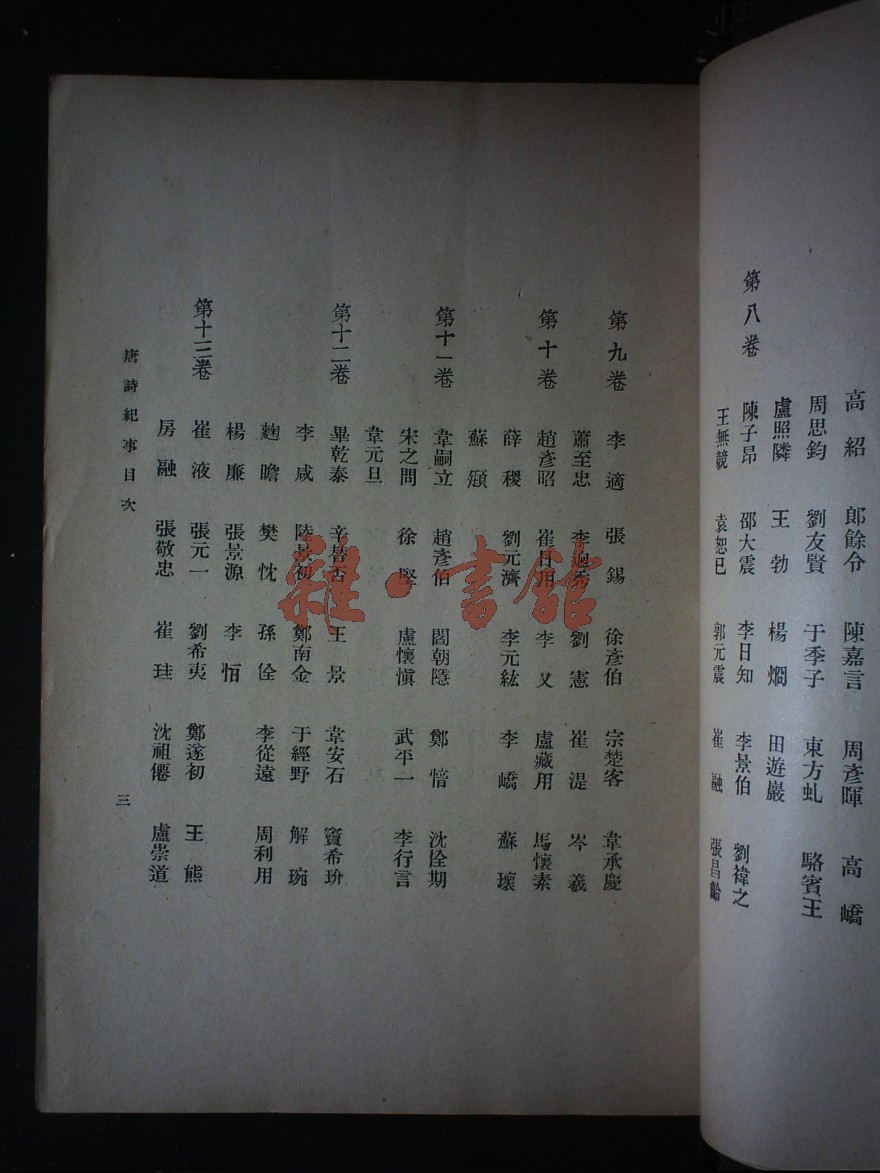 高紹 郎餘令 陳嘉言 周彥暉 高嶠
周思鈞 劉友賢 于季子 東方虬 駱賓王
盧照隣 王勃 楊烱 田遊巖
第八卷 陳子昂 邵大震 李日知 李景伯 劉禕之
王無競 袁恕已 郭元震 崔融 張昌齡
第九卷 李適 張錫 徐彥伯 宗楚客 韋承慶
蕭至忠 李迥秀 劉憲 崔湜 岑羲
第十卷 趙彥昭 崔日用 李乂 盧藏用 馬懷素
薛稷 劉元濟 李元紘 李嶠 蘇瓌
蘇頲
第十一卷 韋嗣立 趙彥伯 閻朝隱 鄭愔 沈佺期
宋之問 徐堅 盧懷愼 武平一 李行言
韋元旦
第十二卷 畢乾泰 辛替否 王景 韋安石 竇希玠
李咸 陸景初 鄭南金 于經野 解琬
麴瞻 樊忱 孫佺 李從遠 周利用
楊廉 張景源 李恒
第十三卷 崔液 張元一 劉希夷 鄭遂初 王熊
房融 張敬忠 崔珪 沈祖僊 盧崇道
唐詩紀事目次 三
雜·書館